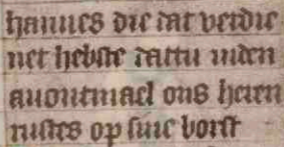 hannes die dat verdie
net hebste dattu inden
auontmael ons heren
rustes op sine borst